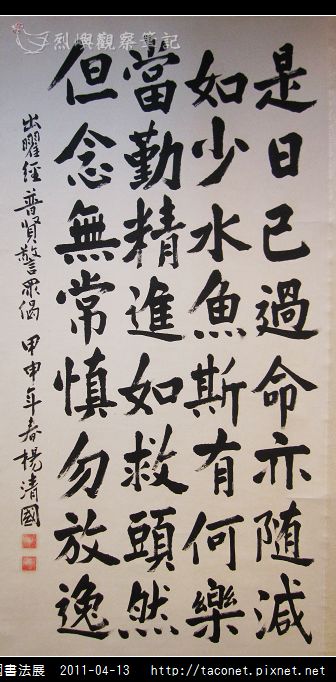 烈嶼觀察筆記
是日已過命亦隨減
如少水魚斯有何樂
當勤精進如救頭然
但念無常慎勿放逸
出曜經普賢警眾偈 甲申年春楊清國
書法展 2011-04-13 http://taconet.pixnet.net